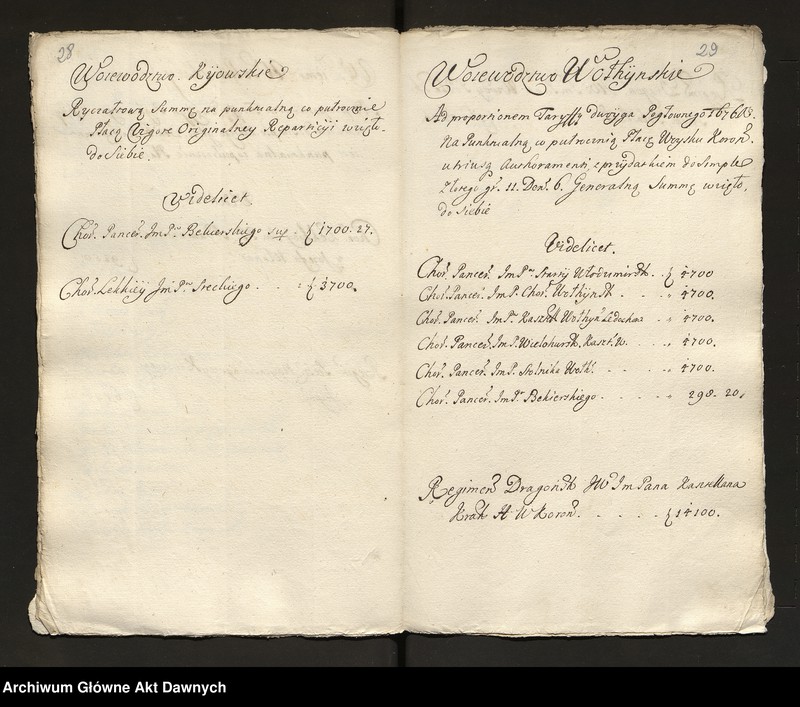 28
Woiewodztwo Kijowskie
Ryczałtową Summę na punktualną co pułrocznie
Płacę Vigore Originalney Repartycyi wzięło
do Siebie.
Videlicet
Chor. Pancer. Im Pa Bekierskiego sup. ƶ 1700. 27.
Chor. Lekkiey Jm Pa . . : ƶ 3700.
29
Woiewodztwo Wołhynskie
Ad proportionem Taryffy dwoyga Pogłownego 1676
Na Punktualną co pułrocznią Płacę Woysku Koron.
utriusq Authoramenti, z przydatkiem do Simpla
Złotego gr. 11. Den. 6. Generalną Summę wzięło,
do Siebie
Videlicet.
Chor. Pancer. Im Pa Starty Włodzimirsk. . ƶ 4700
Chor. Pancer. Im P. Chor. Wołhynsk . . . „ 4700.
Chor. Pancer. Im Pa Kaszt. Wołhyn Ledochow . „ 4700.
Chor. Pancer. Im P. Wielohursk. Kaszt. W. . . „ 4700.
Chor. Pancer. Im P. Stolnika Woł. . . . „ 4700.
Chor. Pancer. Im Pa Bekierskiego . . . . „ 298. 20.
Regimen Dragonsk JW Im Pana Kasztelana
Krak H W Koron. . . . . . ƶ 14100.
Archiwum Główne Akt Dawnych